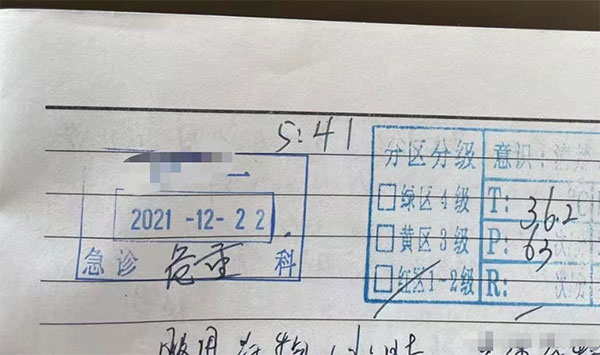 5:41
2021-12-22
急诊 危重 科
分区分级 意识:清楚
□绿区4级 T: 36.2
□黄区3级 P: 63 次
□红区1-2级 R: 次/分
服用药物